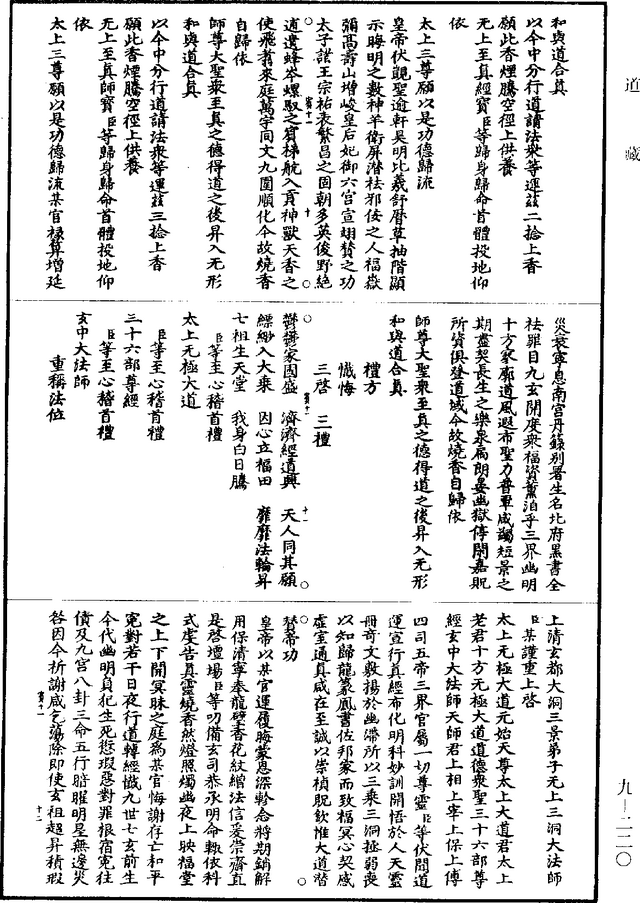 道藏
和與道合真
以今中分行道請法衆等運茲二捻上香
願此香煙騰空徑上供養
无上至真經寶臣等歸身歸命首體投地仰
依
太上三尊願以是功德歸流
皇帝伏願聖逾軒昊明比羲舒曆草抽階顯
示晦明之數神羊衛屏潛祛邪佞之人福嶽
彌高壽山增峻皇后妃御六宮宣翊贊之功
太子諸王宗祐衣繁昌之固朝多英俊野絕
道遺蜂岑螺馭之賓梯航入貢神獸天香之
使飛翥來庭萬宇同文九圍順化今故燒香
自歸依
師尊大聖衆至真之德得道之後昇入无形
和與道合真
以今中分行道請法衆等運茲三捻上香
願此香煙騰空徑上供養
无上至真師寶臣等歸身歸命首體投地仰
依
太上三尊願以是功德歸流某官祿算增延
災衰寧息南宮丹籙別署生名北府黑書全
祛罪目九玄開度衆福資薰洎乎三界幽明
十方家廓道風遐布聖力普覃咸蠲短景之
期盡契長生之樂泉扃朗晏幽獄停閑嘉貺
所資俱登道域今故燒香自歸依
師尊大聖衆至真之德得道之後昇入无形
和與道合真
禮方
懺悔
三啓 三禮
鬱鬱家國盛 濟濟經道興 天人同其願
縹緲入大乘 因心立福田 靡靡法輪昇
七祖生天堂 我身白日騰
臣等至心稽首禮
太上无極大道
臣等至心稽首禮
三十六部尊經
臣等至心稽首禮
玄中大法師
重稱法位
上清玄都大洞三景弟子无上三洞大法師
臣某謹重上啓
太上无極大道元始天尊太上大道君太上
老君十方无極大道道德衆聖三十六部尊
經玄中大法師天師君上相上宰上保上傅
四司五帝三界官屬一切尊靈臣等伏聞道
運宣行真經布化明科妙訓開悟於人天靈
冊奇文敷揚於幽滯所以三乘三洞拯弱喪
以知歸龍篆鳳書佐邦家而致福冥心契感
虛室通真咸在至誠以崇禎貺欽惟大道潛
贊帝功
皇帝以某官運履晦蒙恩深軫念將期銷解
用保清寧奉龍璧香花紋繒法信爰崇齋直
是啓壇場臣等叨備玄司恭承明命輒依科
式虔告真靈燒香然燈照燭幽夜上映福堂
之上下開冥昧之庭爲某官悔謝存亡和平
冤對若干日夜行道轉經懺九世七玄前生
今代幽明負犯生死愆瑕惡對罪根宿冤往
債及九宮八卦三命五行暗曜明星无邊災
咎因今祈謝咸乞蕩除即使玄祖超昇積瑕
九—二二〇